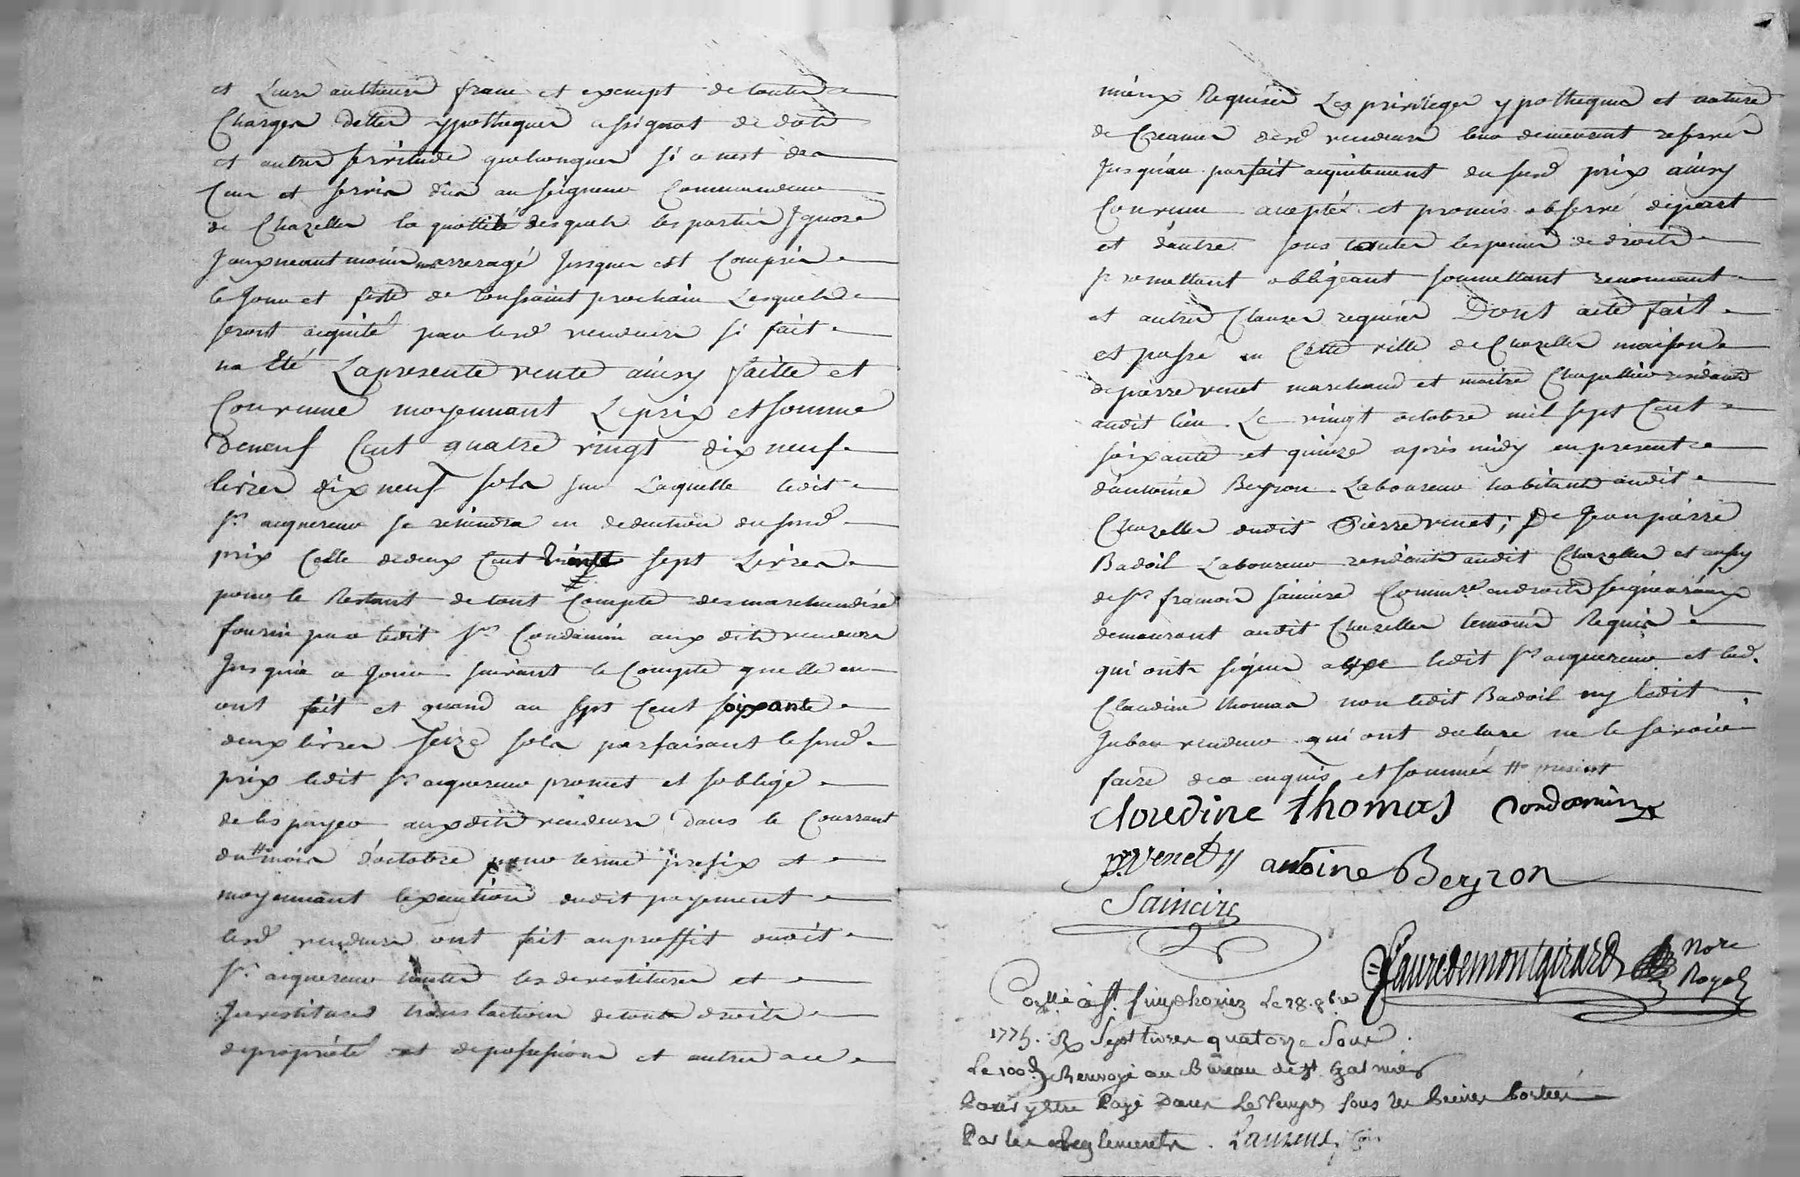 et Leurs autheurs franc et exempt de toutes
Charges dettes ypotheques assignat de dots
et autres servitudes quelconques si ce nest des
Cens et servis dus au seigneur Commandeur
de Chazelles la quottité desquels les parties Ignore
Iceux neantmoins non arreragé Jusques est Compris
le Jour et feste de Toussaint prochain Lesquels
seront acquités par lesd vendeurs si fait
na Eté La presente vente ainsy faitte et
Convenue moyennant Le prix et somme
de neuf Cent quatre vingt dix neuf
livres dix neuf sols sur Laquelle ledit
Sr acquereur se retiendra en deduction dususd
prix Celle de deux Cent trente sept Livres
pour le Restant de tout Compte des marchandises
fournis par ledit Sr Condamin aux dits vendeurs
Jusqua a Jour suivant le Compte quelle en
ont fait et quand au sept Cent soixante
deux livres seize sols parfaisant le susd
prix ledit Sr acquereur promet et soblige
de les payer auxdits vendeurs dans le Courrant
du mois doctobre pour terme prefix et
moyennant lexecution dudit payement
lesd vendeurs ont fait au proffit dudit
Sr acquereur toutes les devestitures et
Investitures translations de tous droits
de propriété et de possession et autres ace
mieux Requises Les privileges ypotheques et nature
de Creance desd vendeurs leurs demeurant reservés
Jusquau parfait acquittement du susd prix ainsy
Convenu accepté et promis observé de part
et dautre sous toutes les peines de droits
promettant obligeant soumettant renoncant
et autres Clauses requises Dont acte fait
et passé en Cette ville de Chazelles maison
de pierre venet marchand et maitre Chapellier residant
audit lieu Le vingt octobre mil sept Cent
soixante et quinze après midy en present
dantoine Beyron Laboureur habitant audit
Chazelles dudit Pierre venet, De Jean pierre
Badoil Laboureur residant audit Chazelles et aussy
de Sr francois saincire Commre en droits seigneuriaux
demeurant audit Chazelles temoins Requis
qui onts signés avec ledit Sr acquereur et lad.
Claudine thomas non ledit Badoil ny ledit
Juban vendeur qui ont declare ne le savoir
faire de ce enquis et sommés
Claudine thomas Condamin
P Venet antoine Beyron
Saincire
Faure de montgirard Nore
Royal
Conlle à St Simphorien Le 28. 8bre
1775. R Sept livres quatorze Sous
Le 100d Renvoyé au Bureau de St Galmier
Pour y etre Payé Dans Les temps sous les Peines Portées
Par les Reglements. Laurent